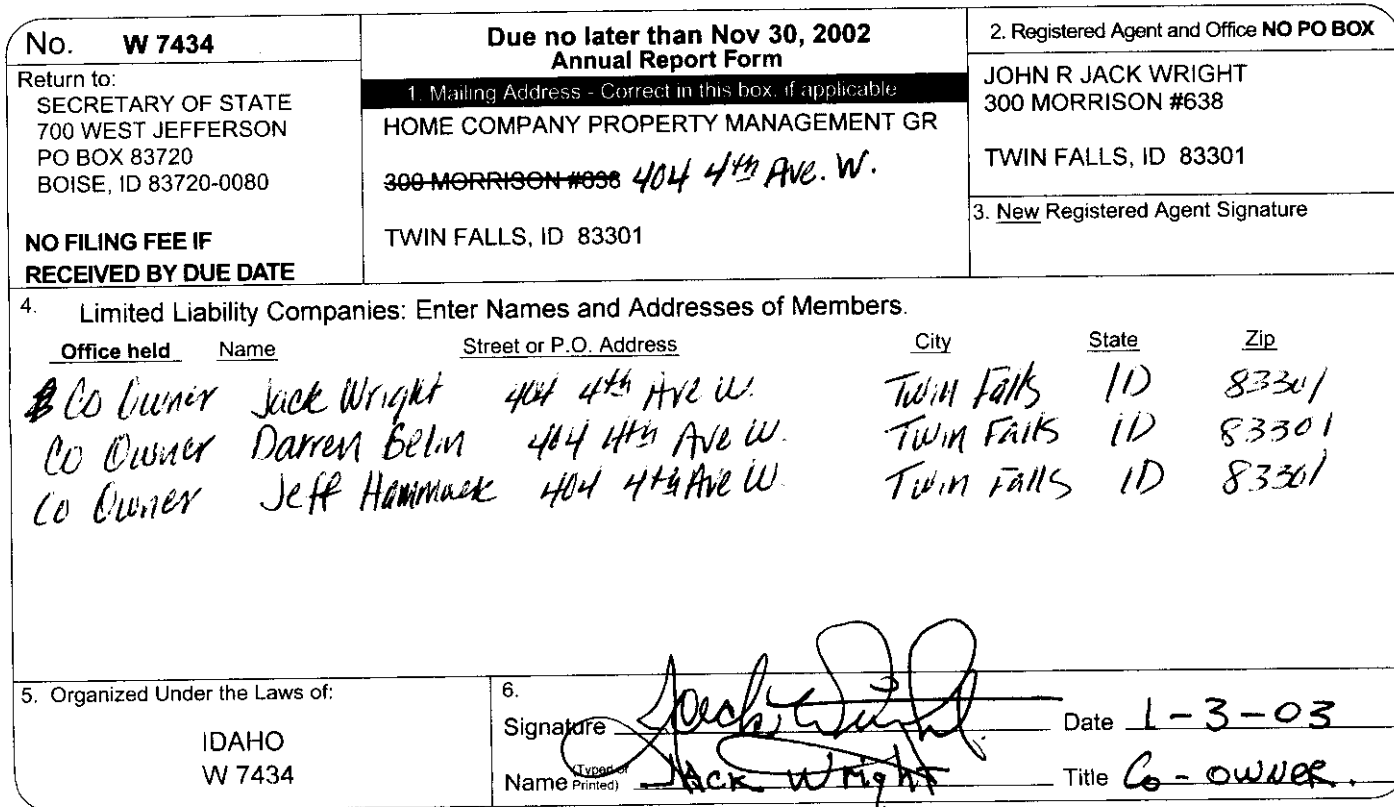 No. W 7434
Return to:
SECRETARY OF STATE
700 WEST JEFFERSON
PO BOX 83720
BOISE, ID 83720-0080
NO FILING FEE IF
RECEIVED BY DUE DATE
Due no later than Nov 30, 2002
Annual Report Form
1. Mailing Address - Correct in this box, if applicable
HOME COMPANY PROPERTY MANAGEMENT GR
300 MORRISON #638 404 4th Ave. W.
TWIN FALLS, ID 83301
2. Registered Agent and Office NO PO BOX
JOHN R JACK WRIGHT
300 MORRISON #638
TWIN FALLS, ID 83301
3. New Registered Agent Signature
4. Limited Liability Companies: Enter Names and Addresses of Members.
Office held Name Street or P.O. Address City State Zip
Co Owner Jack Wright 404 4th Ave W. Twin Falls ID 83301
Co Owner Darren Belin 404 4th Ave W. Twin Falls ID 83301
Co Owner Jeff Hammack 404 4th Ave W. Twin Falls ID 83301
5. Organized Under the Laws of:
IDAHO
W 7434
6.
Signature Jack Wright Date 1-3-03
Name (Typed or Printed) JACK WrigHT Title Co-owner.